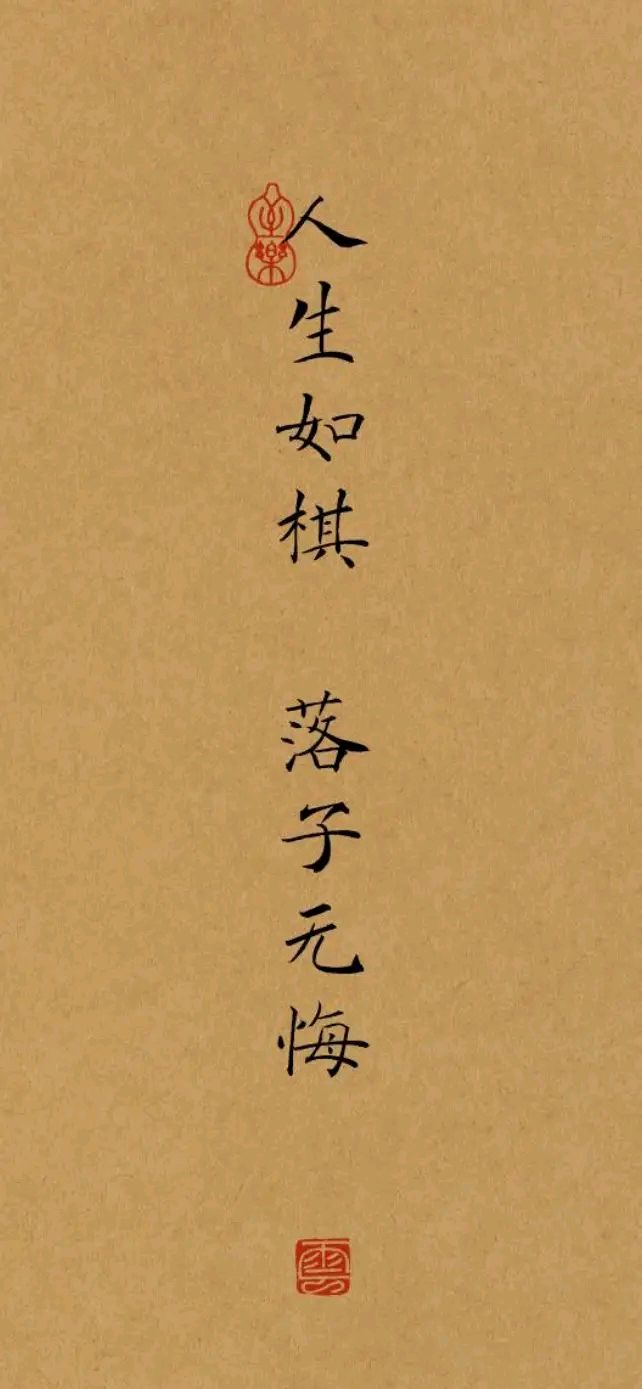 人生如棋 落子无悔
雲